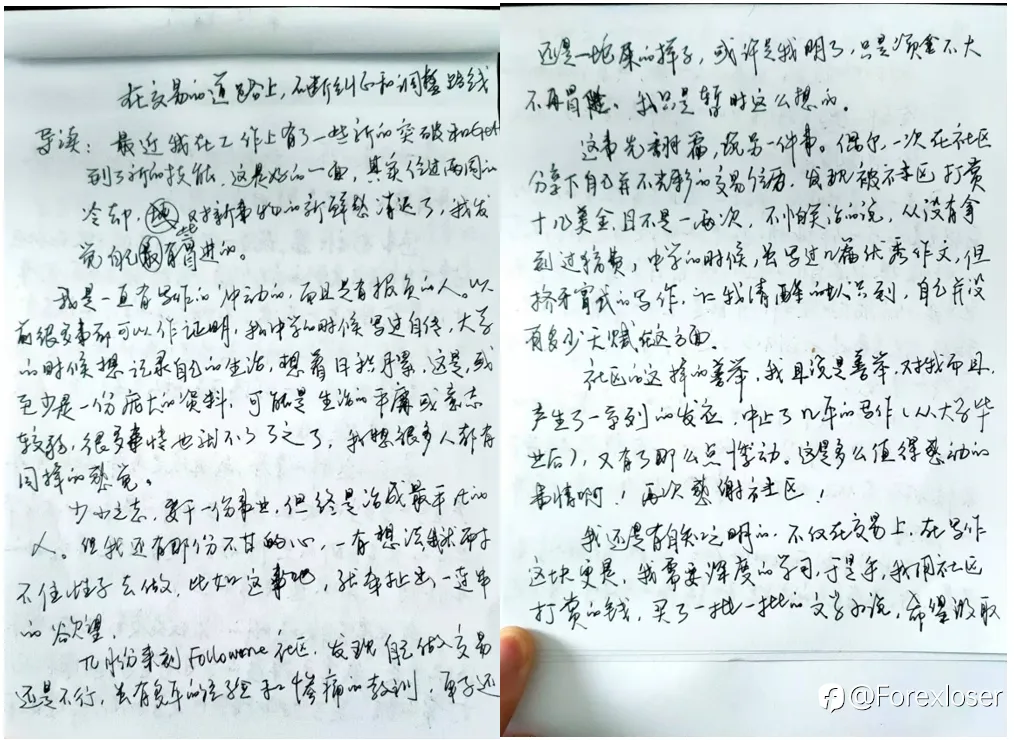 在交易的道路上，不断纠正和调整路线
导读：最近我在工作上有了一些新的突破和Get
到了新的技能，这是好的一面，其实经过两周的
冷却，对新事物的新鲜感消退了，我发
觉自己是有冒进的。
我是一直有写作的冲动的，而且是有报负的人。以
前很多事都可以作证明，我中学的时候写过自传，大学
的时候想记录自己的生活，想着日积月累，这是，或
至少是一份庞大的资料，可能是生活的平庸或意志
较弱，很多事情也就不了了之了，我想很多人都有
同样的感觉。
少小之志，要干一份事业，但终是活成最平凡的
人。但我还有那份不甘的心，一有想法就耐
不住性子去做，比如这事吧，能牵扯出一连串
的欲望。
几月份来到Followme社区，发现自己做交易
还是不行，虽有多年的经验和惨痛的教训，
还是一地鸡的样子，或许是我明了，只是资金不大
不再冒险。我只是暂时这么想的。
这事先翻篇，说另一件事。偶尔，一次在社区
分享下自己并不光彩的交易经历，发现被社区打赏
十几美金，且不是一两次，不怕笑话的说，从没有拿
到过稿费，中学的时候，虽写过几篇优秀作文，但
挤牙膏式的写作，让我清醒的认识到，自己并没
有多少天赋在这方面。
社区的这样的善举，我且说是善举，对我而且，
产生了一系列的发应，中止了几年的写作（从大学毕
业后），又有了那么点悸动。这是多么值得感动的
事情啊！再次感谢社区！
我还是有自知之明的，不仅在交易上，在写作
这块更是，我需要深度的学习，于是乎，我用社区
打赏的钱，买了一批一批的文学小说，希望汲取
@Forexloser